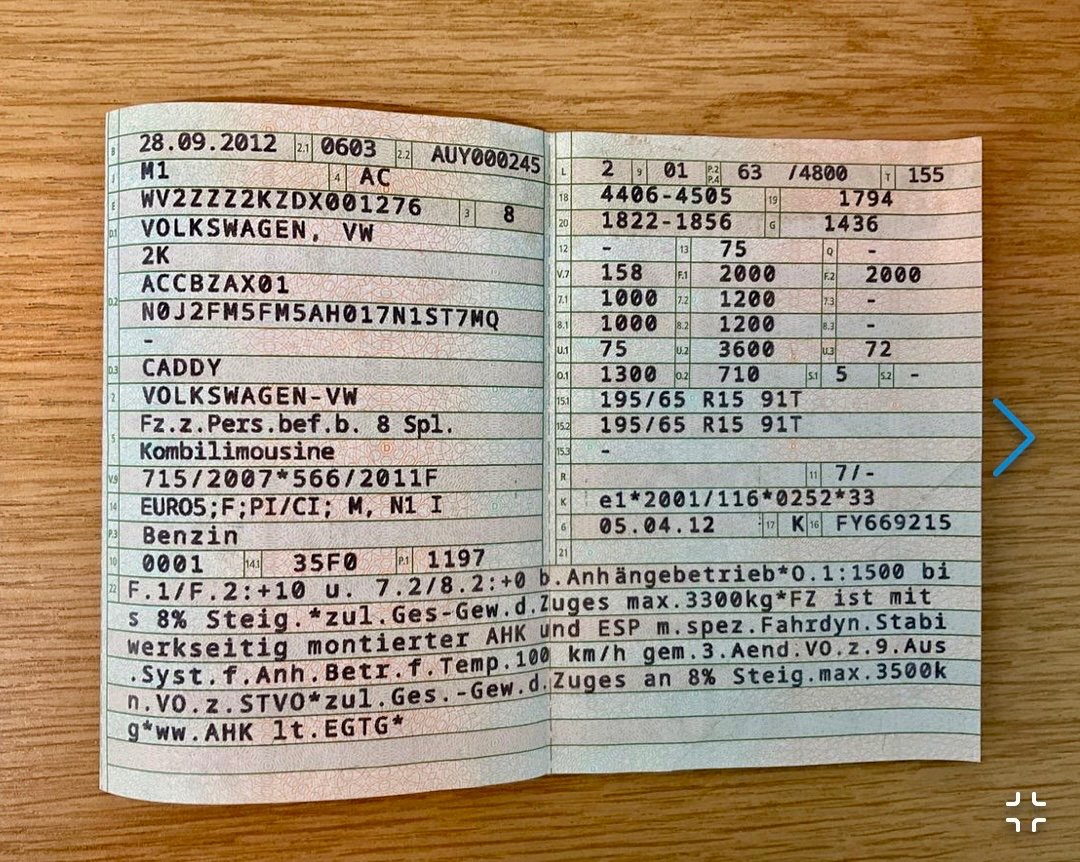 B 28.09.2012 2.1 0603 2.2 AUY000245
J M1 4 AC
E WV2ZZZ2KZDX001276 3 8
D.1 VOLKSWAGEN, VW
2K
D.2 ACCBZAX01
N0J2FM5FM5AH017N1ST7MQ
-
D.3 CADDY
2 VOLKSWAGEN-VW
5 Fz.z.Pers.bef.b. 8 Spl.
Kombilimousine
V.9 715/2007*566/2011F
14 EURO5;F;PI/CI; M, N1 I
P.3 Benzin
10 0001 14.1 35F0 P.1 1197
L 2 9 01 P.2 P.4 63 /4800 T 155
18 4406-4505 19 1794
20 1822-1856 G 1436
12 - 13 75 Q -
V.7 158 F.1 2000 F.2 2000
7.1 1000 7.2 1200 7.3 -
8.1 1000 8.2 1200 8.3 -
U.1 75 U.2 3600 U.3 72
O.1 1300 O.2 710 S.1 5 S.2 -
15.1 195/65 R15 91T
15.2 195/65 R15 91T
15.3 -
R 11 7/-
K e1*2001/116*0252*33
6 05.04.12 17 K 16 FY669215
21
22 F.1/F.2:+10 u. 7.2/8.2:+0 b.Anhängebetrieb*O.1:1500 bi
s 8% Steig.*zul.Ges-Gew.d.Zuges max.3300kg*FZ ist mit
werkseitig montierter AHK und ESP m.spez.Fahrdyn.Stabi
.Syst.f.Anh.Betr.f.Temp.100 km/h gem.3.Aend.VO.z.9.Aus
n.VO.z.STVO*zul.Ges.-Gew.d.Zuges an 8% Steig.max.3500k
g*ww.AHK lt.EGTG*